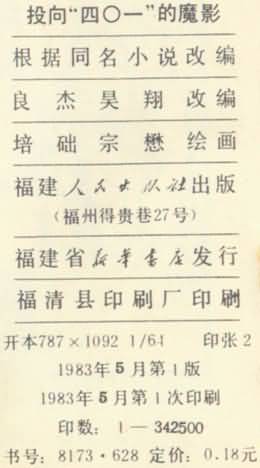 投向“四〇一”的魔影
根据同名小说改编
良杰昊翔改编
培础宗懋绘画
福建人民出版社出版
(福州得贵巷27号)
福建省新华书店发行
福清县印刷厂印刷
开本787×1092 1/64 印张2
1983年5月第1版
1983年5月第1次印刷
印数：1—342500
书号：8173·628 定价：0.18元